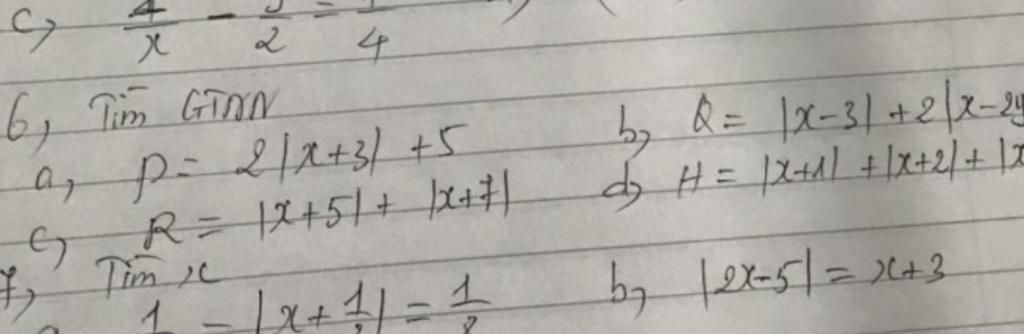 c, 4/x - 5/2 = 1/4
6, Tìm GTNN
a, P = 2|x+3| +5 b, Q = |x-3| + 2|x-2y
c, R = |x+5| + |x+7| d, H = |x+1| + |x+2| + |x
7, Tìm x
- |x + = b, |2x-5| = x+3